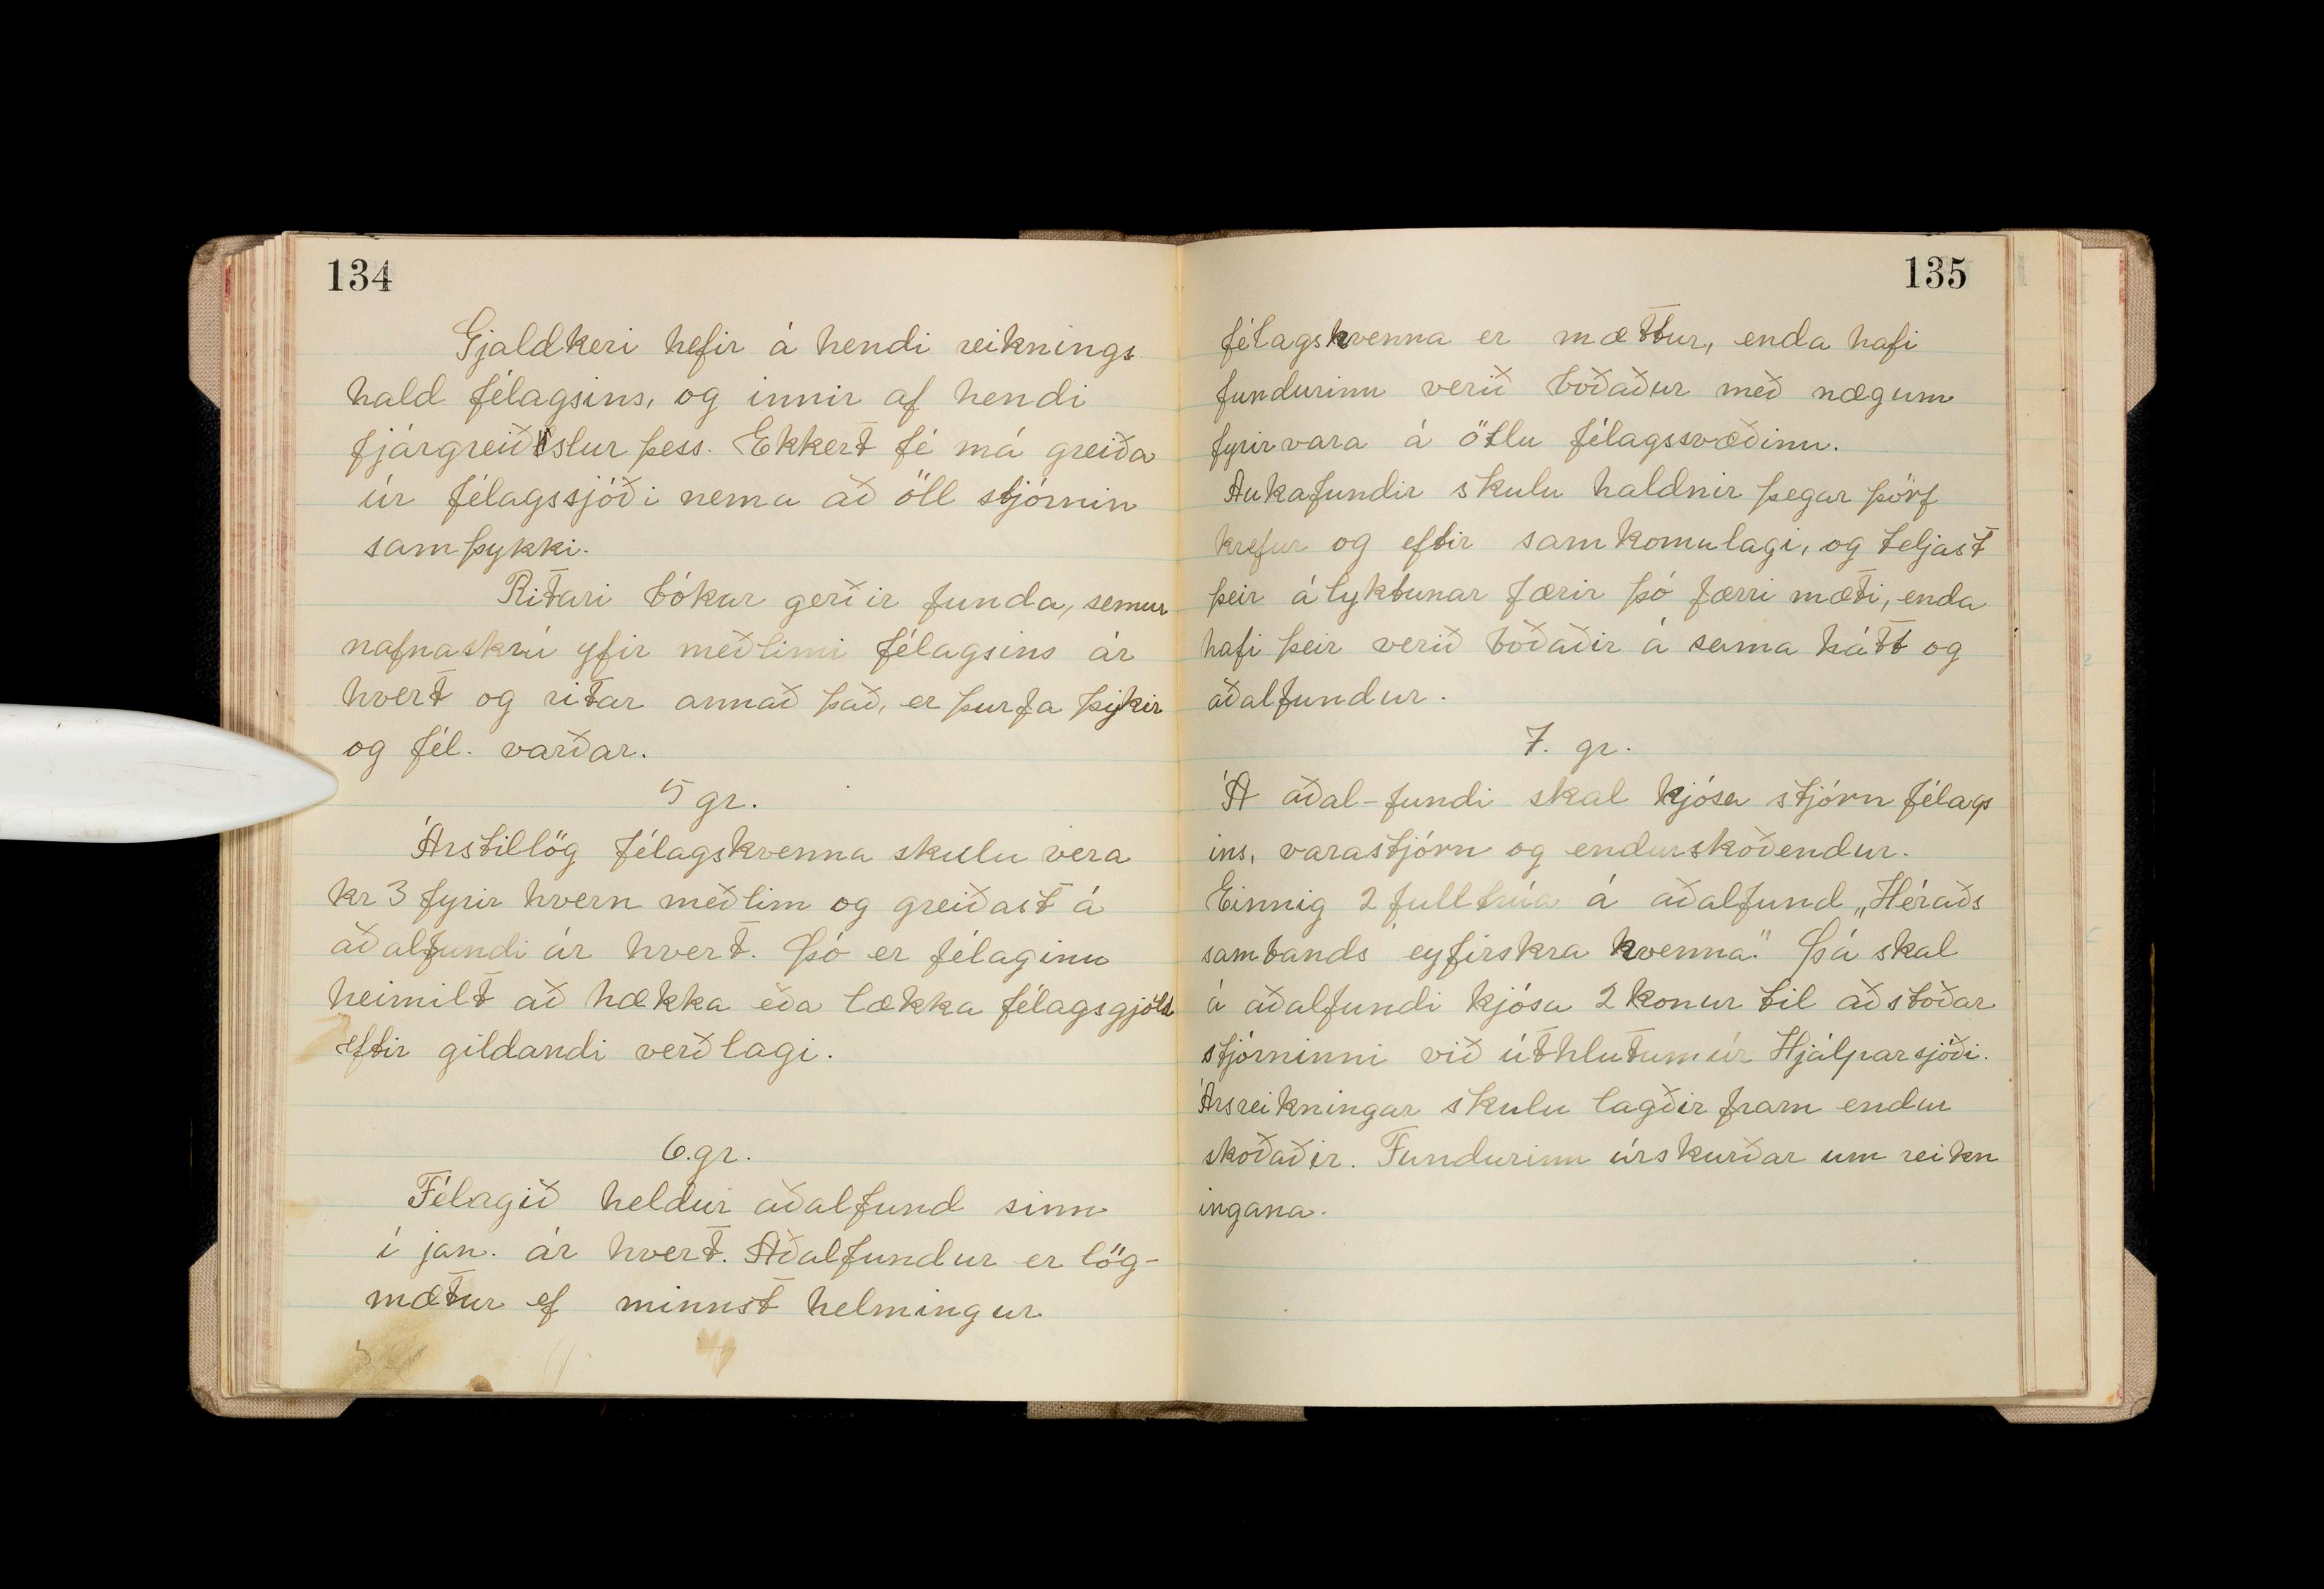 134
Gjaldkeri hefir á hendi reiknings
hald félagsins, og innir af hendi
fjárgreiðslur þess. Ekkert fé má greiða
úr félagssjóði nema að öll stjórnin
samþykki.
Ritari bókar gerðir funda, semur
nafnaskrá yfir meðlimi félagsins ár
hvert og ritar annað það, er þurfa þykir
og fél. varðar.
5 gr.
Árstillög félagskvenna skulu vera
kr 3 fyrir hvern meðlim og greiðast á
aðalfundi ár hvert. Þó er félaginu
heimilt að hækka eða lækka félagsgjöld
eftir gildandi verðlagi.
6.gr.
Félagið heldur aðalfund sinn
í jan. ár hvert. Aðalfundur er lög-
mætur ef minnst helmingur
135
félagskvenna er mættur, enda hafi
fundurinn verið boðaður með nægum
fyrirvara á öllu félagssvæðinu.
Aukafundir skulu haldnir þegar þörf
krefur og eftir samkomulagi, og teljast
þeir ályktunar færir þó færri mæti, enda
hafi þeir verið boðaðir á sama hátt og
aðalfundur.
7. gr.
Á aðal-fundi skal kjósa stjórn félags
ins, varastjórn og endurskoðendur.
Einnig 2 fulltrúa á aðalfund „Héraðs
sambands eyfirskra kvenna." Þá skal
á aðalfundi kjósa 2 konur til aðstoðar
stjórninni við úthlutum úr Hjálparsjóði.
Ársreikningar skulu lagðir fram endur
skoðaðir. Fundurinn úrskurðar um reikn
ingana.